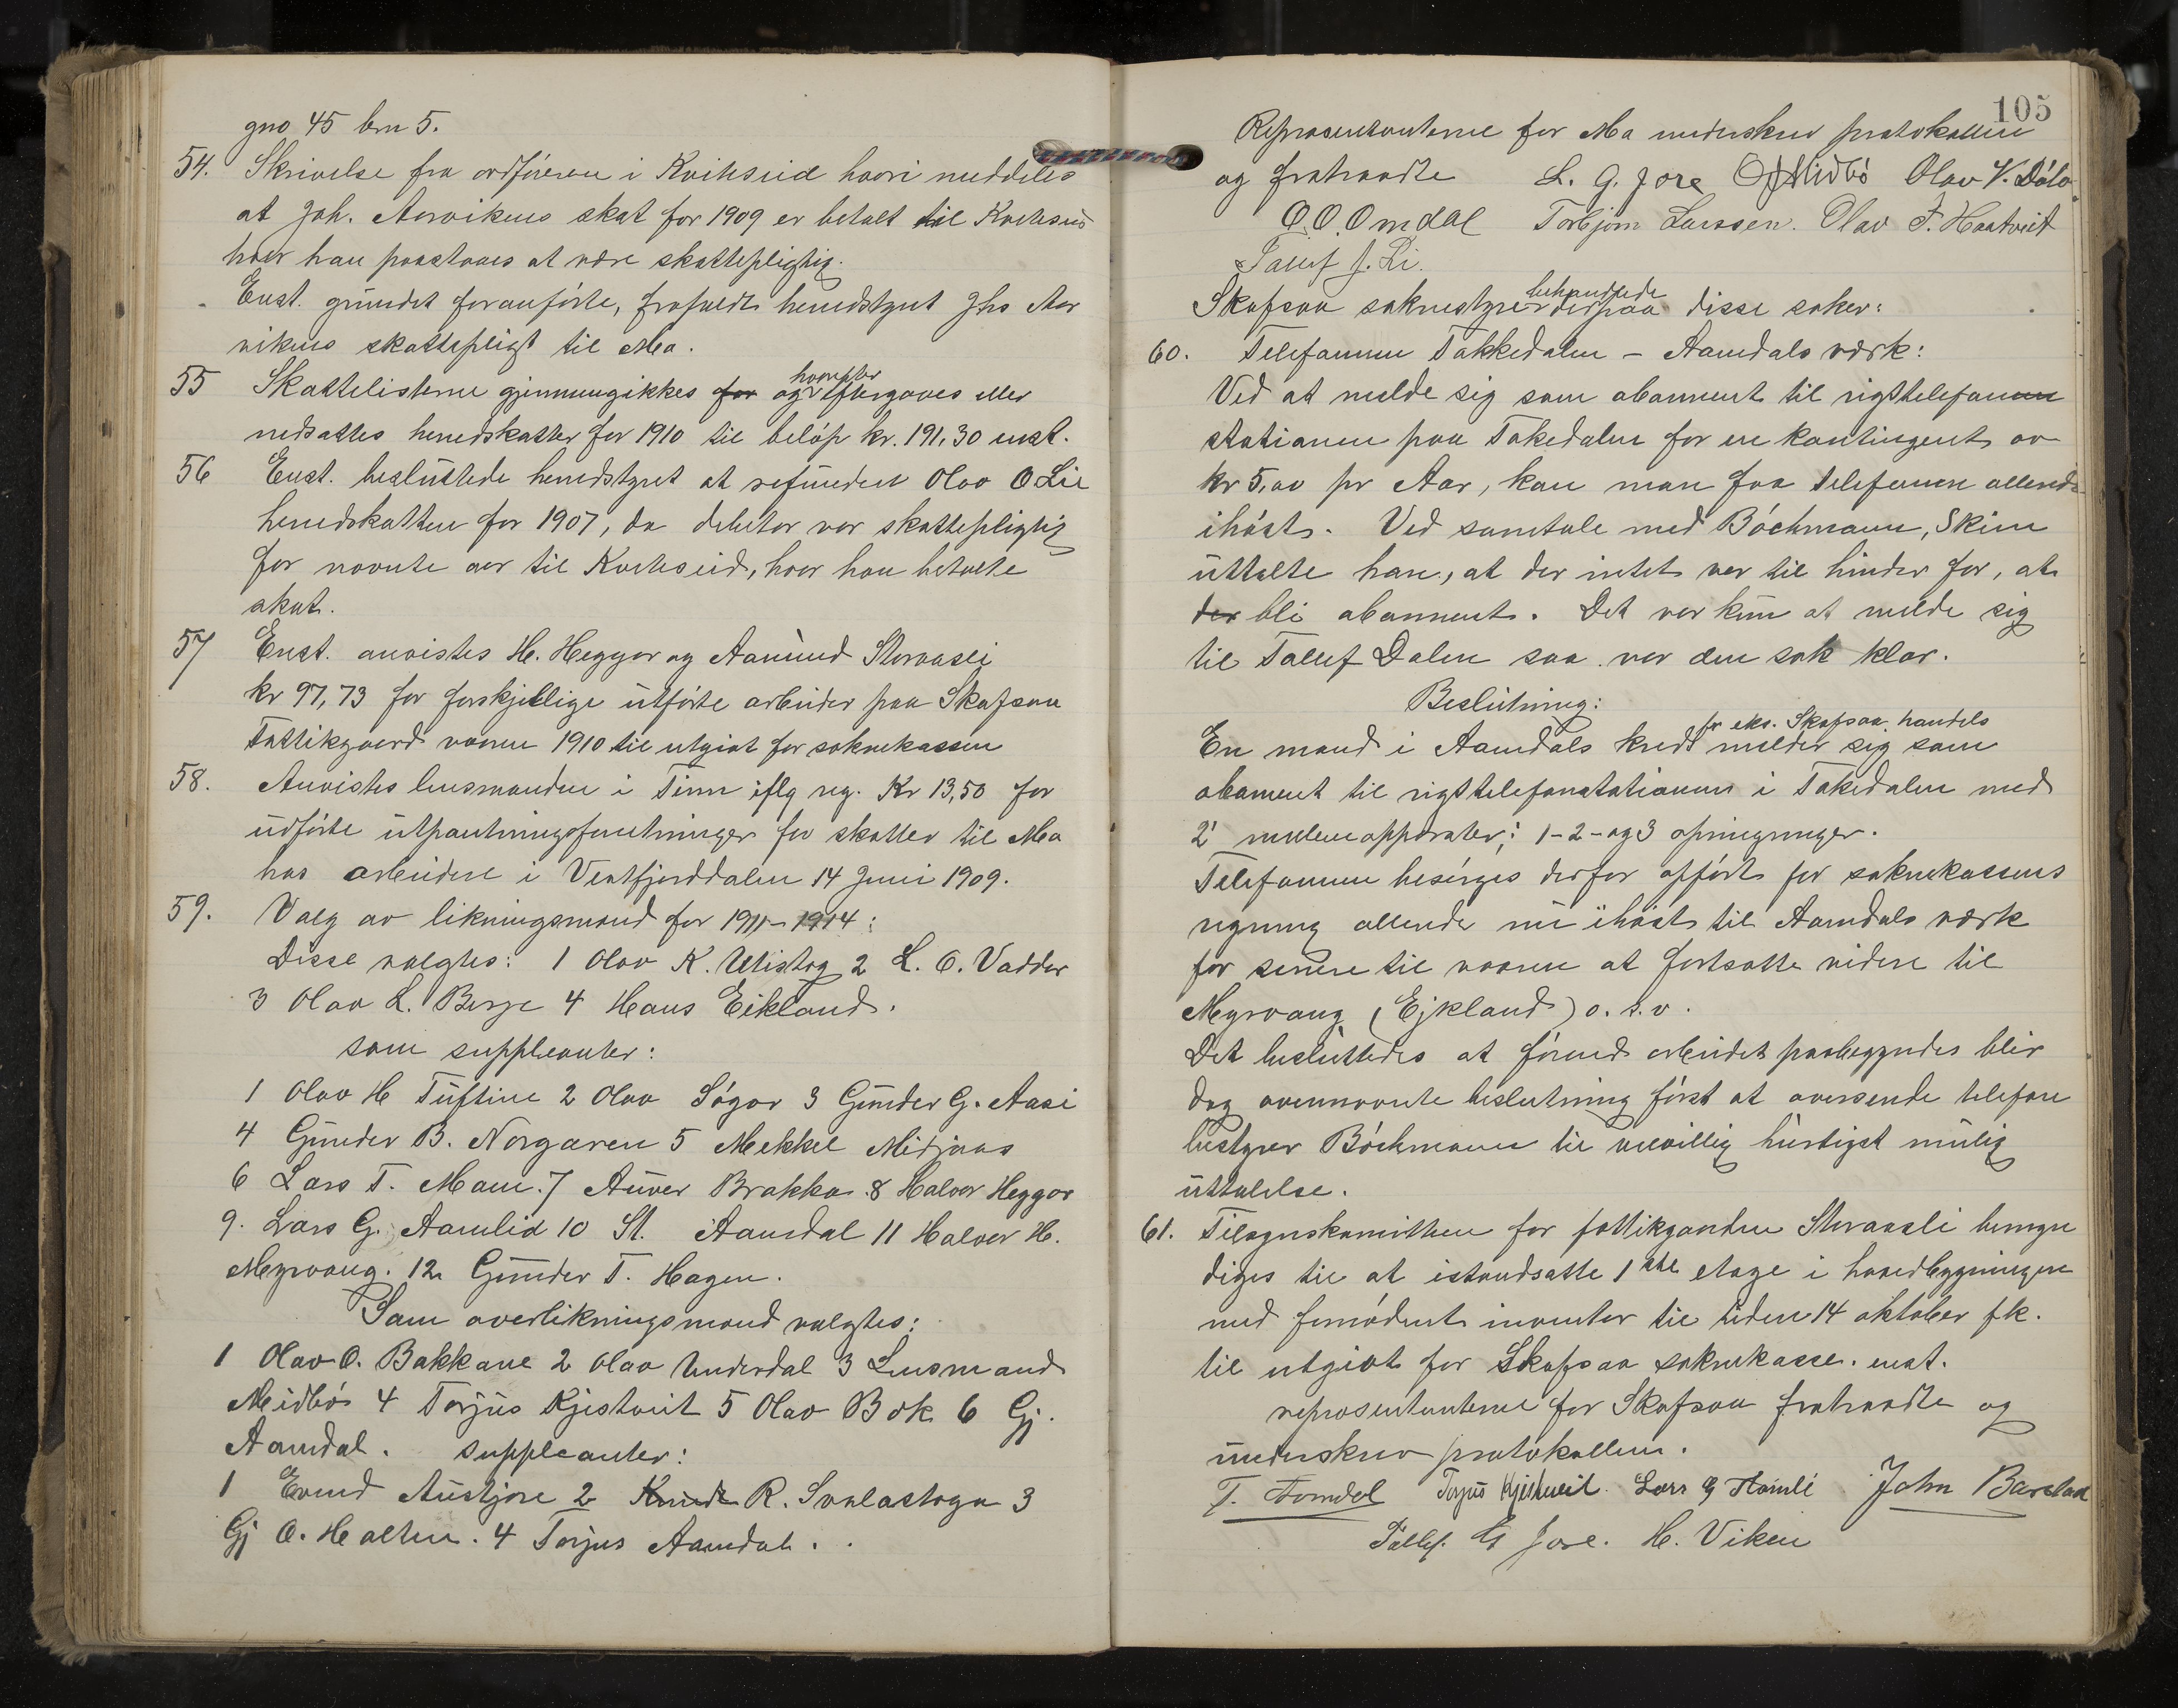 gno 45 brn 5.
54. Skrivelse fra ordföreren i Kvitseid hvori meddeles
at Joh. Aarvikens skat for 1909 er betalt til Kvitseid
hvor han paastaaes at være skattepligtig.
Enst. grundet foranförte, frafaldt herredstyret Jhs Aar
vikens skattepligt til Mo.
55 Skattelisterne gjennemgikkes for og hvorefter eftergaves eller
nedsattes herredskatter for 1910 til beløp kr. 191,30 enst.
56 Enst. besluttede herredstyret at refundere Olav O Lie
herredskatten for 1907, da debitor var skattepligtig
for nævnte aar til Kvitseid, hvor han betalte
skat.
57 Enst. anvistes H. Heggor og Aamund Storvasli
kr 97,73 for forskjellige utförte arbeider paa Skafsaa
Fattikgaard vaaren 1910 til utgiat for soknekassen
58. Anvistes lensmanden i Tinn iflg reg. Kr 13,50 for
udförte utpantningsforretninger for skatter til Mo
hos arbeidere i Vestfjorddalen 14 Juni 1909.
59. Valg av likningsmænd for 1911-1914:
Disse valgtes: 1 Olav K. Utistog 2 L. O. Vadder
3 Olav L. Berge 4 Hans Eikland.
som suppleanter:
1 Olav H Tuftine 2 Olav Sögor 3 Gunder G. Aasi
4 Gunder B. Norgaren 5 Mekkel Midjaas
6 Lars T. Moen. 7 Anver Brakka 8 Halvor Heggor
9. Lars G. Aamlid 10 St. Aamdal 11 Halvor H.
Myrvang. 12 Gunder T. Hagen.
Som overlikningsmænd valgtes:
1 Olav O. Bakkane 2 Olav Underdal 3 Lensmand
Meidbö 4 Torjus Kjestveit 5 Olav Bok 6 Gj.
Aamdal. suppleanter:
1 Evind Austjore 2 Knudt R. Svalastoga 3
Gj O. Holten. 4 Torjus Aamdal.
105
Repræsentanterne for Mo underskrev protokollen
og fratraadte L. G. Jore O J Midbö Olav V. Dölo
O. O. Omdal Torbjørn Larssen. Olav F. Haatveit
Tallef J. Li.
Skafsaa soknestyre behandlede derpaa disse saker:
60. Telefonnen Tokkedalen - Aamdals værk:
Ved at melde sig som abonnent til rigstelefonnen
stationen paa Tokedalen for en kontingent av
kr 5,00 pr Aar, kan man faa telefonen allerede
ihöst. Ved samtale med Böckmann, Skien
uttalte han, at der intet var til hinder for, at
der bli abonnent. Det var kun at melde sig
til Tallef Dalen saa var den sak klar.
Beslutning:
En mand i Aamdals kreds for eks. Skafsaa handels melder sig som
abonnent til rigstelefonstationen i Tokedalen med
2 mellemapparater; 1-2-og 3 opringninger.
Telefonnen besörges derfor opfört for soknekassens
regning allerede nu ihöst til Aamdals værk
for senere til vaaren at fortsætte videre til
Myrvang (Ejkland) o. s. v.
Det besluttedes at förend arbeidet paabegyndes blir
dog ovennævnte beslutning först at oversende telefon
bestyrer Böckmann til velvillig hurtigst mulig
uttalelse.
61. Tilsynskomitteen for fattikgarden Storvasli bemyn
diges til at istandsætte 1ste etage i hovedbygningen
med fornödent inventar til tiden 14 oktober fk.
til utgiat for Skafsaa soknekasse. enst.
repræsentanterne for Skafsaa fratraadte og
underskrev protokollen.
T. Aamdal Torjus Kjestveit. Lars G Aamli John Barstad
Tallef. G Jore. H. Viken